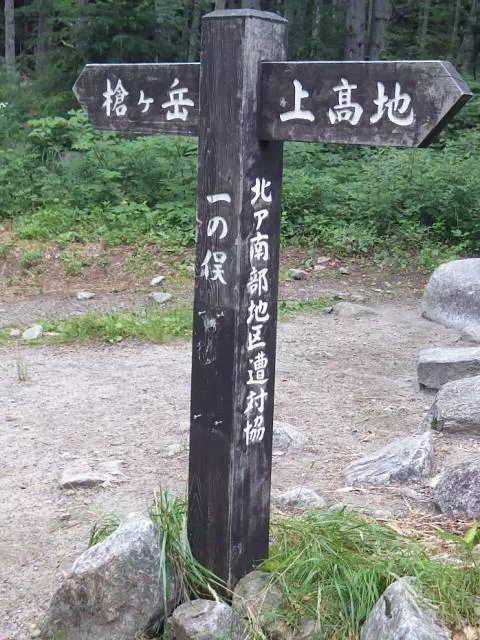 槍ヶ岳
上高地
一の俣
北ア南部地区遭対協